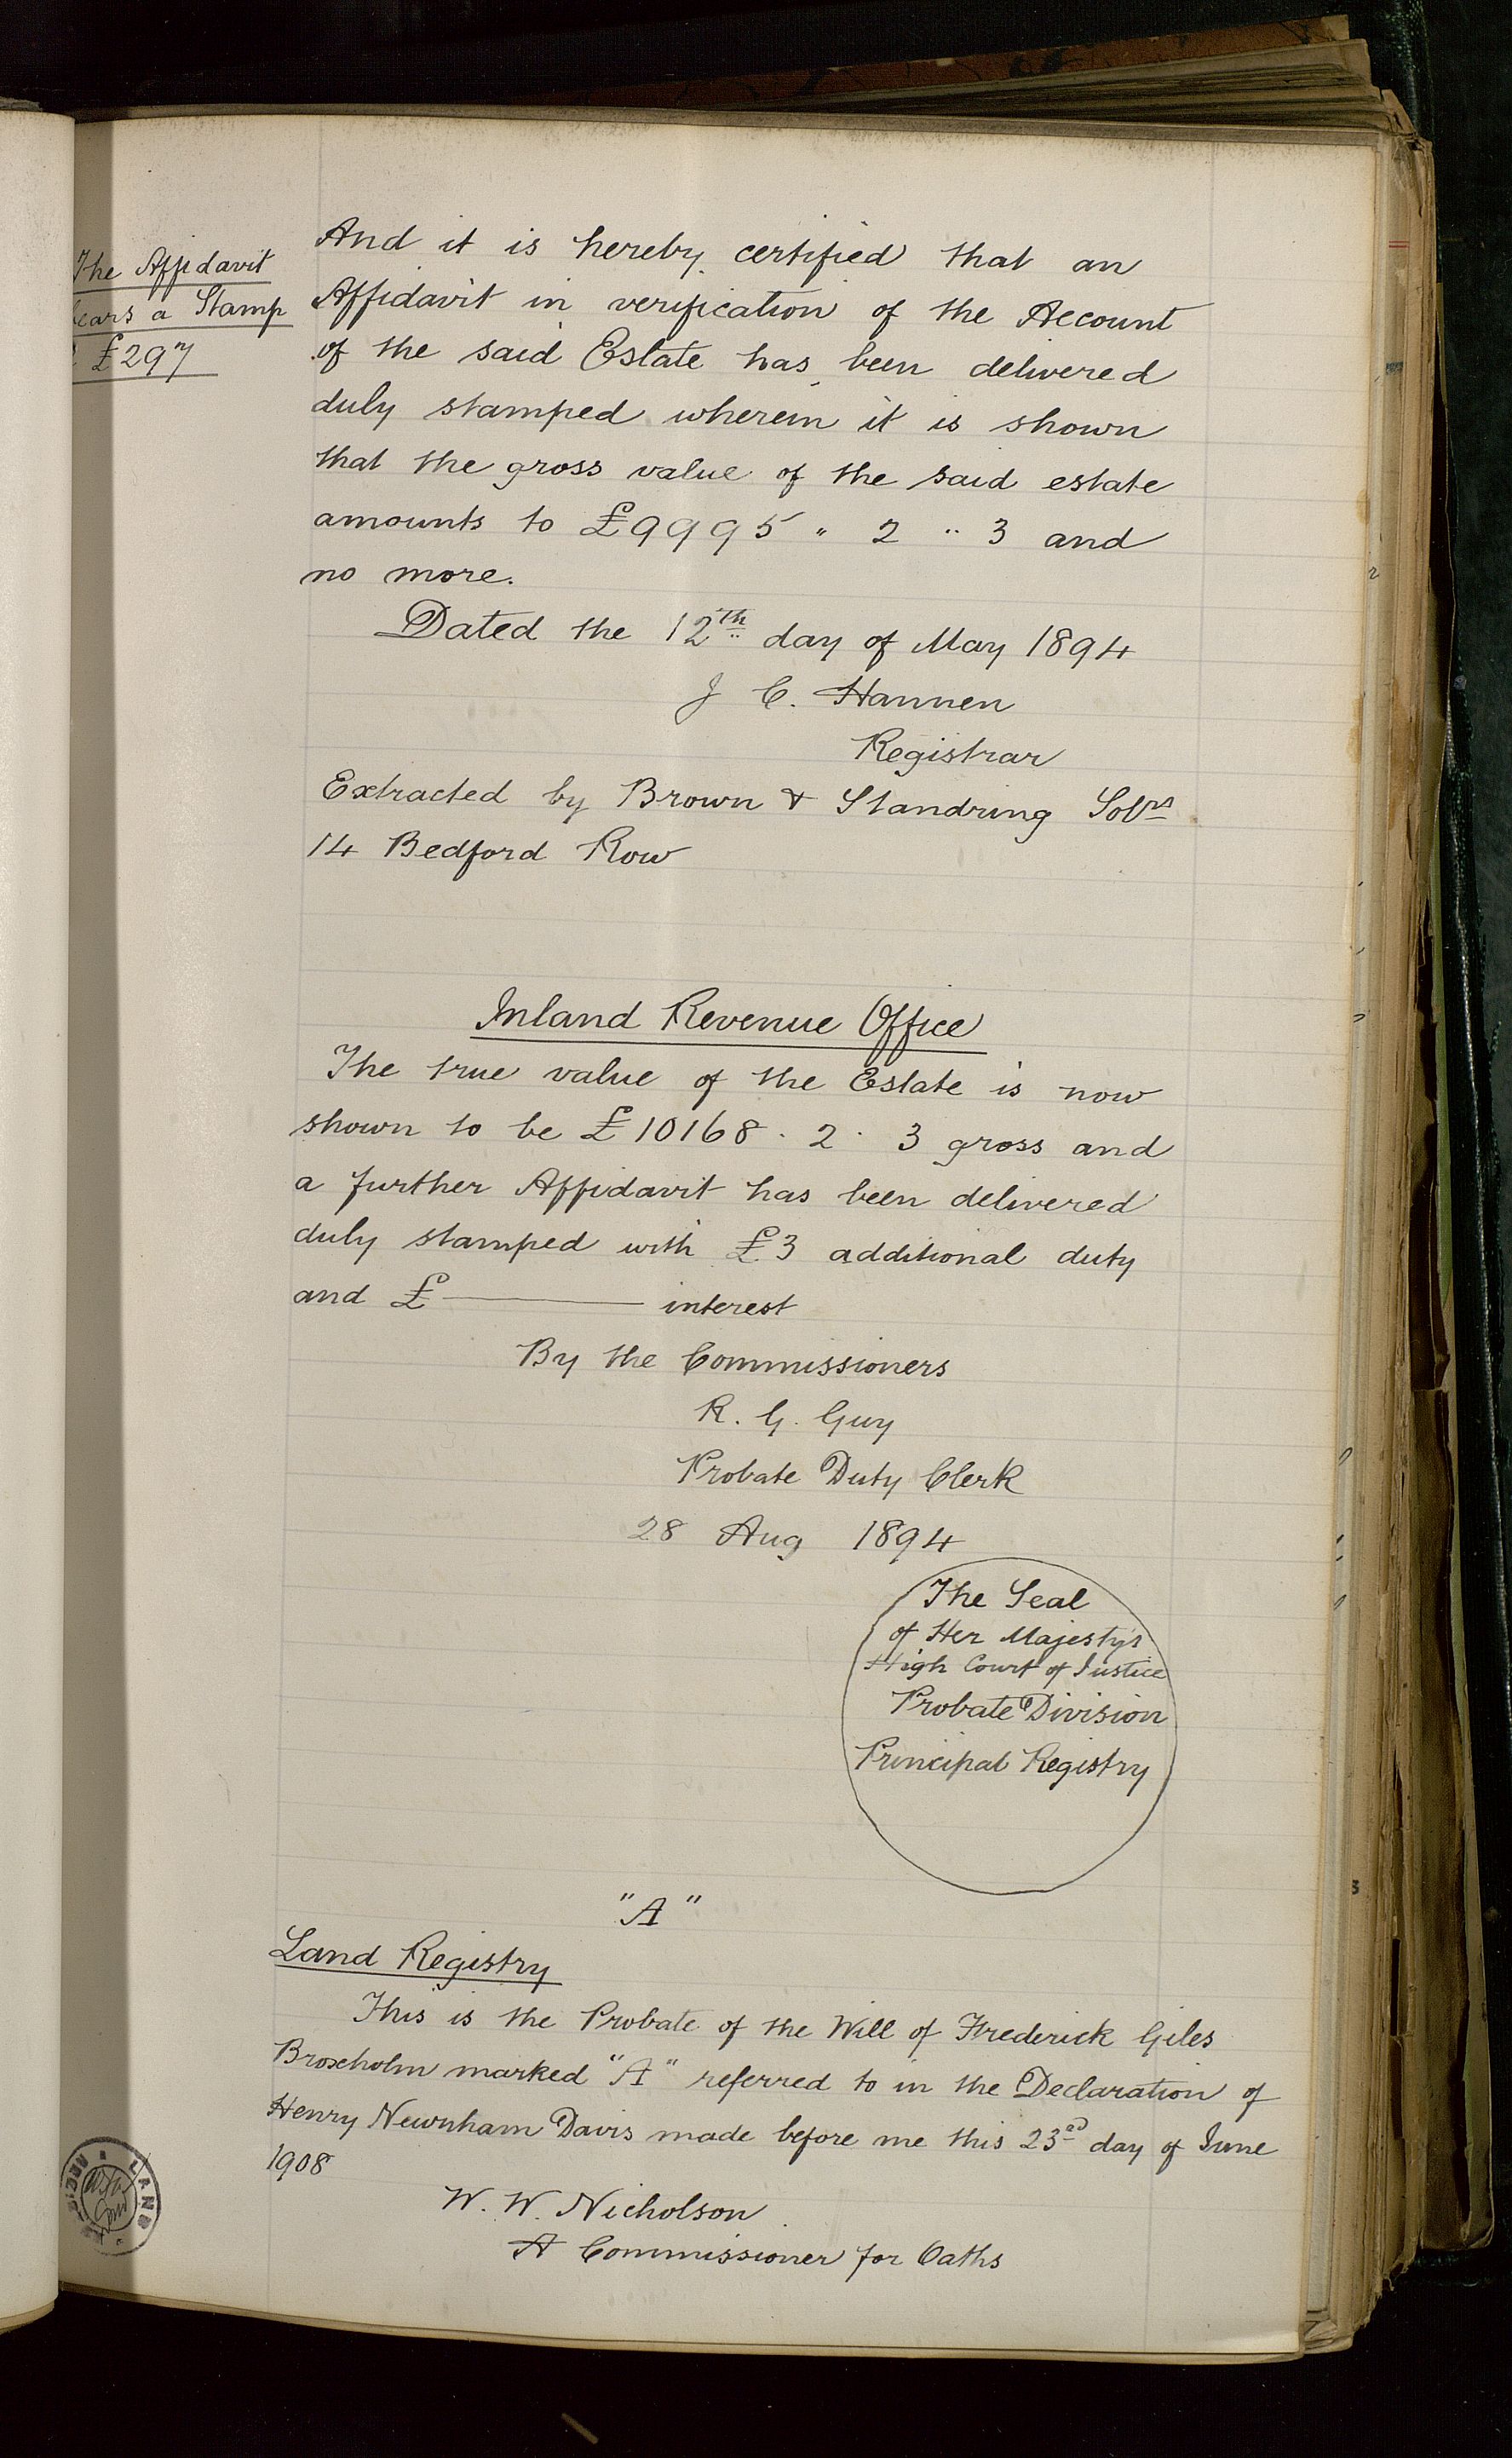 The Affidavit
bears a Stamp
£297
And it is hereby certified that an
Affidavit in verification of the Account
of the said Estate has been delivered
duly stamped wherein it is shown
that the gross value of the said estate
amounts to £9995 " 2 " 3 and
no more.
Dated the 12th day of May 1894
J C. Hannen
Registrar
Extracted by Brown & Standring Solrs
14 Bedford Row
Inland Revenue Office
The true value of the Estate is now
shown to be £10168 . 2 . 3 gross and
a further Affidavit has been delivered
duly stamped with £3 additional duty
and £ ——— interest
By the Commissioners
R. G. Guy
Probate Duty Clerk
28 Aug 1894
The Seal
of Her Majesty's
High Court of Justice
Probate Division
Principal Registry
"A"
Land Registry
This is the Probate of the Will of Frederick Giles
Broxholm marked "A" referred to in the Declaration of
Henry Newnham Davis made before me this 23rd day of June
1908
W. W. Nicholson
A Commissioner for Oaths
LAND